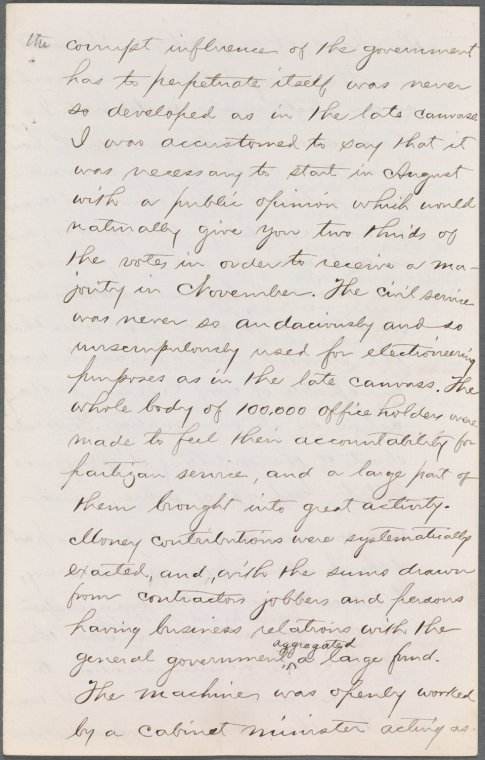 the corrupt influence of the government
has to perpetuate itself was never
so developed as in the late canvass
I was accustomed to say that it
was necessary to start in August
with a public opinion which would
naturally give you two thirds of
the votes in order to receive a ma-
jority in November. The civil service
was never so audaciously and so
unscrupulously used for electioneering
purposes as in the late canvass. The
whole body of 100,000 office holders were
made to feel their accountability for
partizan service, and a large part of
them brought into great activity.
Money contributions were systematically
exacted, and, with the sums drawn
from contractors jobbers and persons
having business relations with the
aggregated
general government, a large fund.
The machine was openly worked
by a cabinet minister acting as